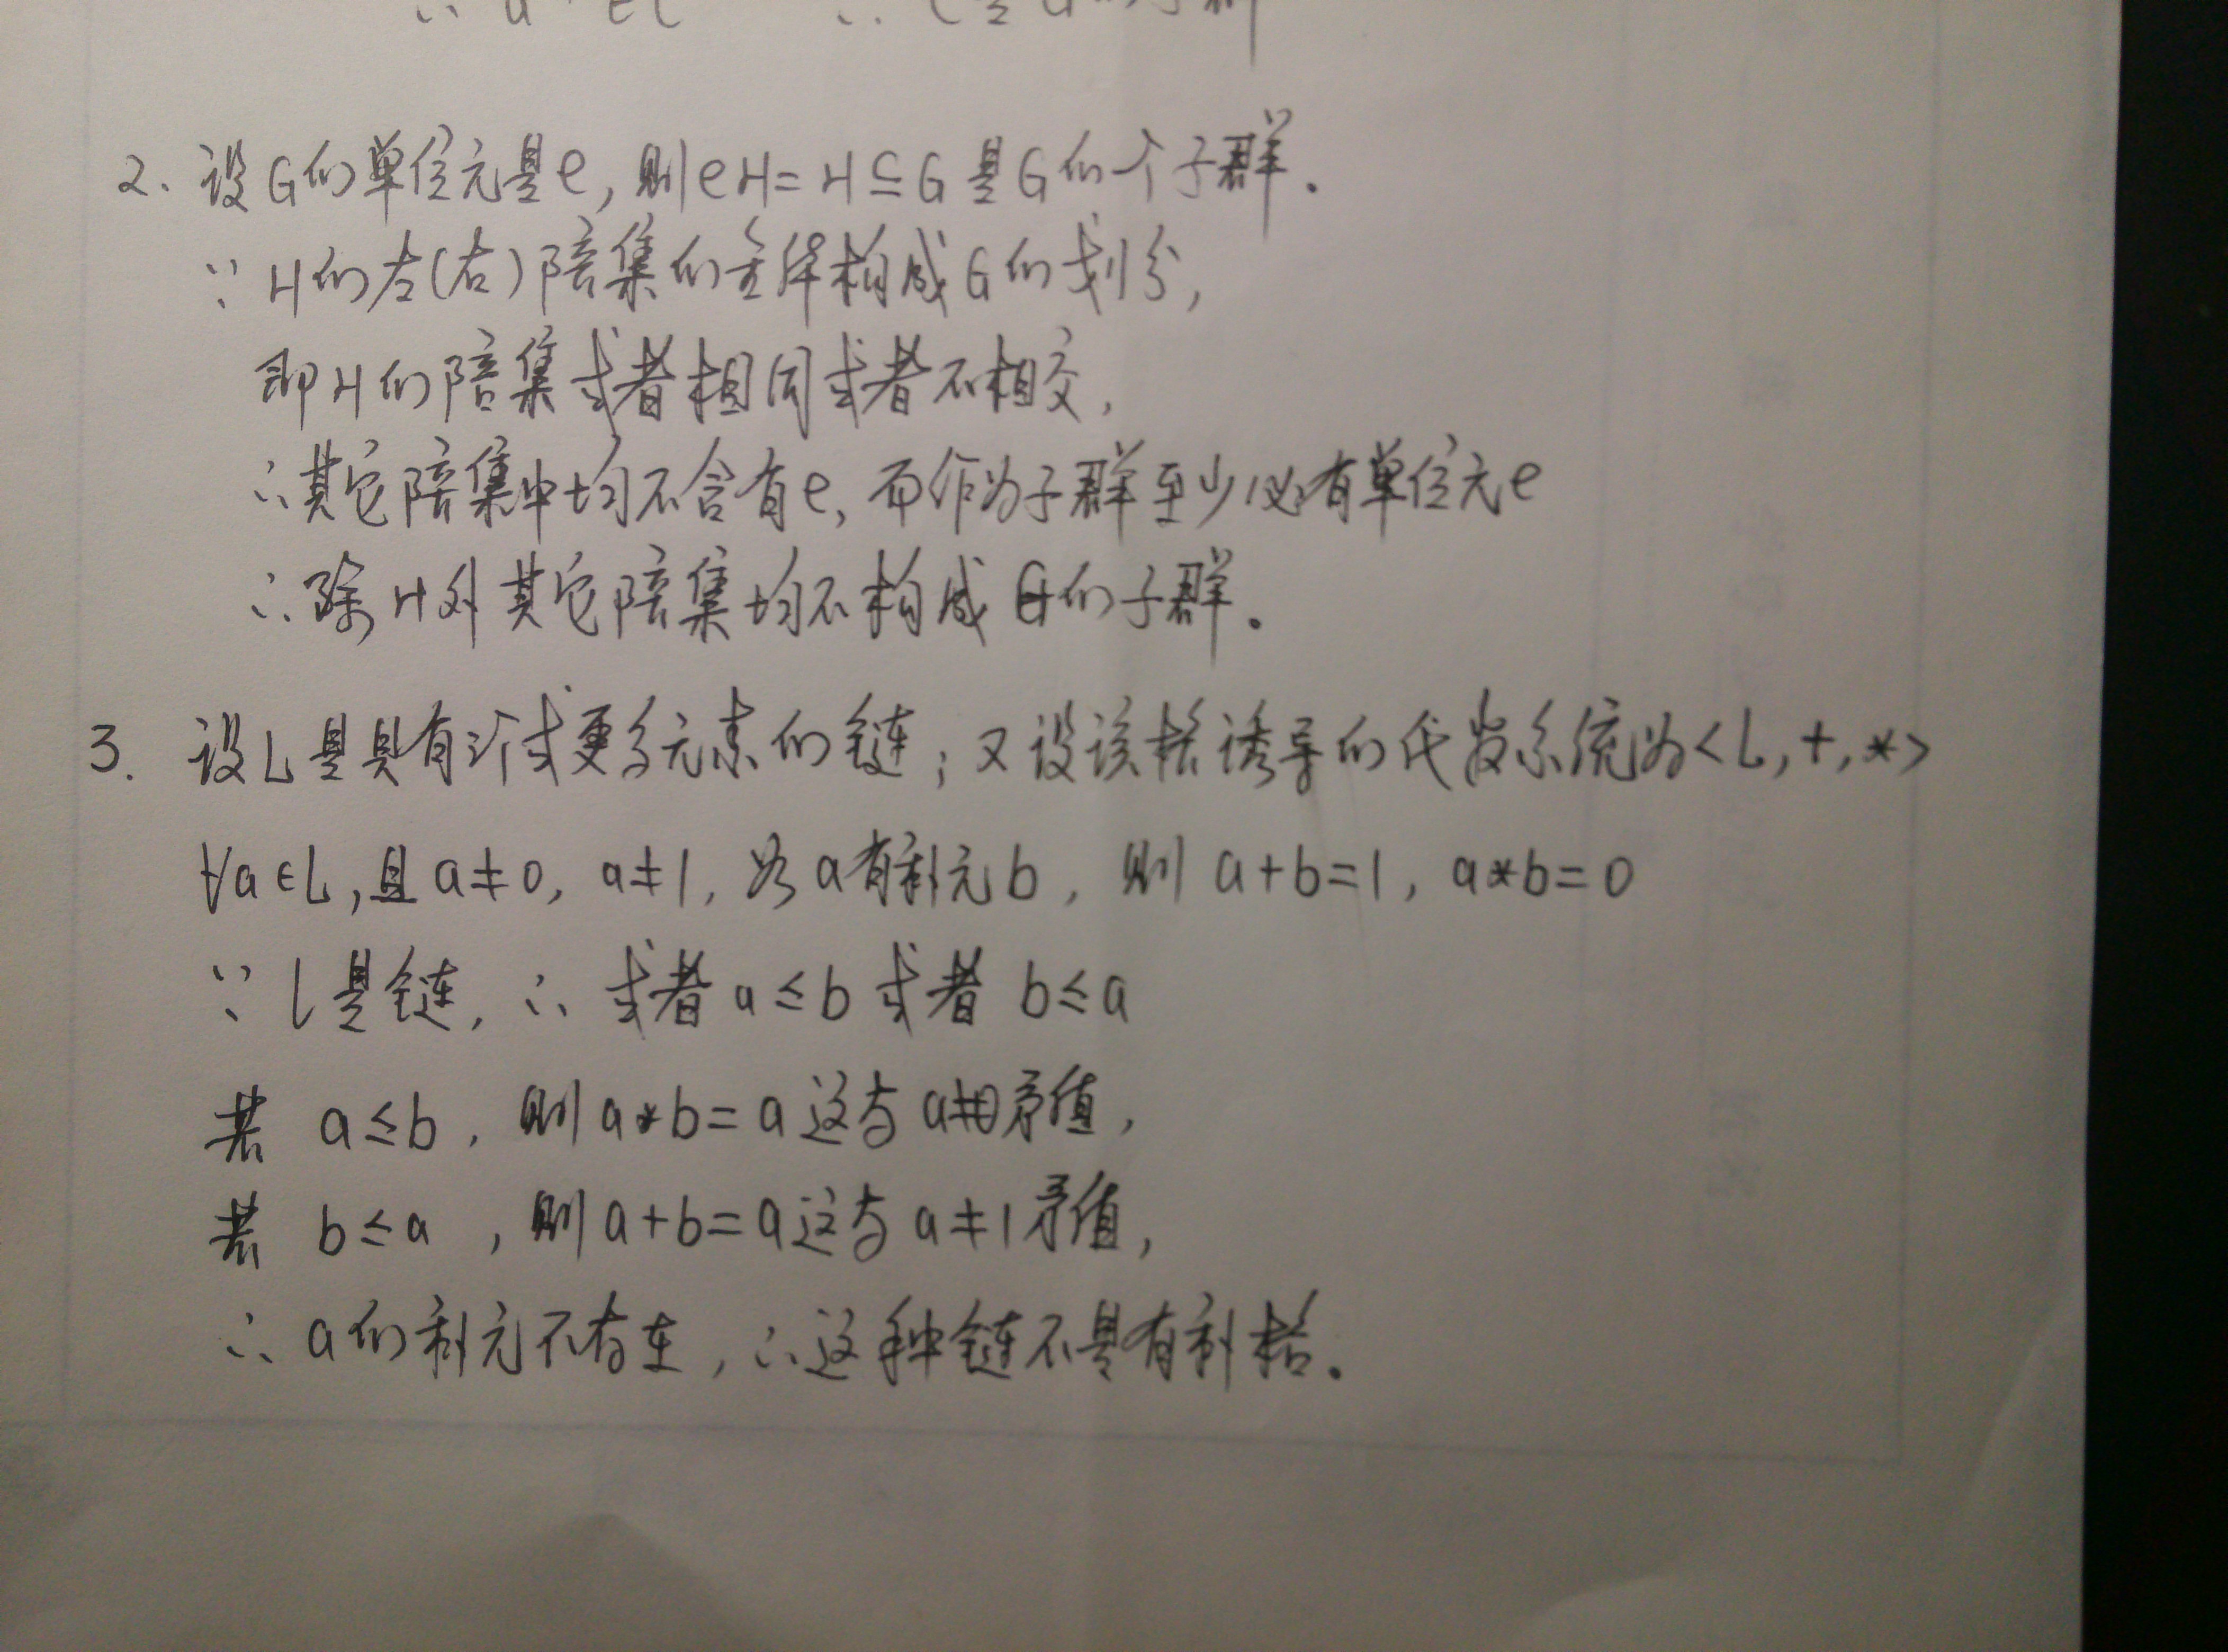 2. 设G的单位元是e, 则eH=H⊆G是G的一个子群.
∵ H的左(右)陪集的全体构成G的划分,
即H的陪集或者相同或者不相交,
∴其它陪集中均不含有e, 而作为子群至少必有单位元e
∴除H外其它陪集均不构成G的子群.
3. 设L是具有三个或更多元素的链; 又设该格诱导的代数系统为<L,+,*>
∀a∈L,且a≠0, a≠1, 如a有补元b, 则 a+b=1, a*b=0
∵ L是链, ∴ 或者a≤b或者 b≤a
若 a≤b, 则a*b=a这与a≠0矛值,
若 b≤a, 则a+b=a这与a≠1矛值,
∴ a的补元不存在, ∴这种链不是有补格.